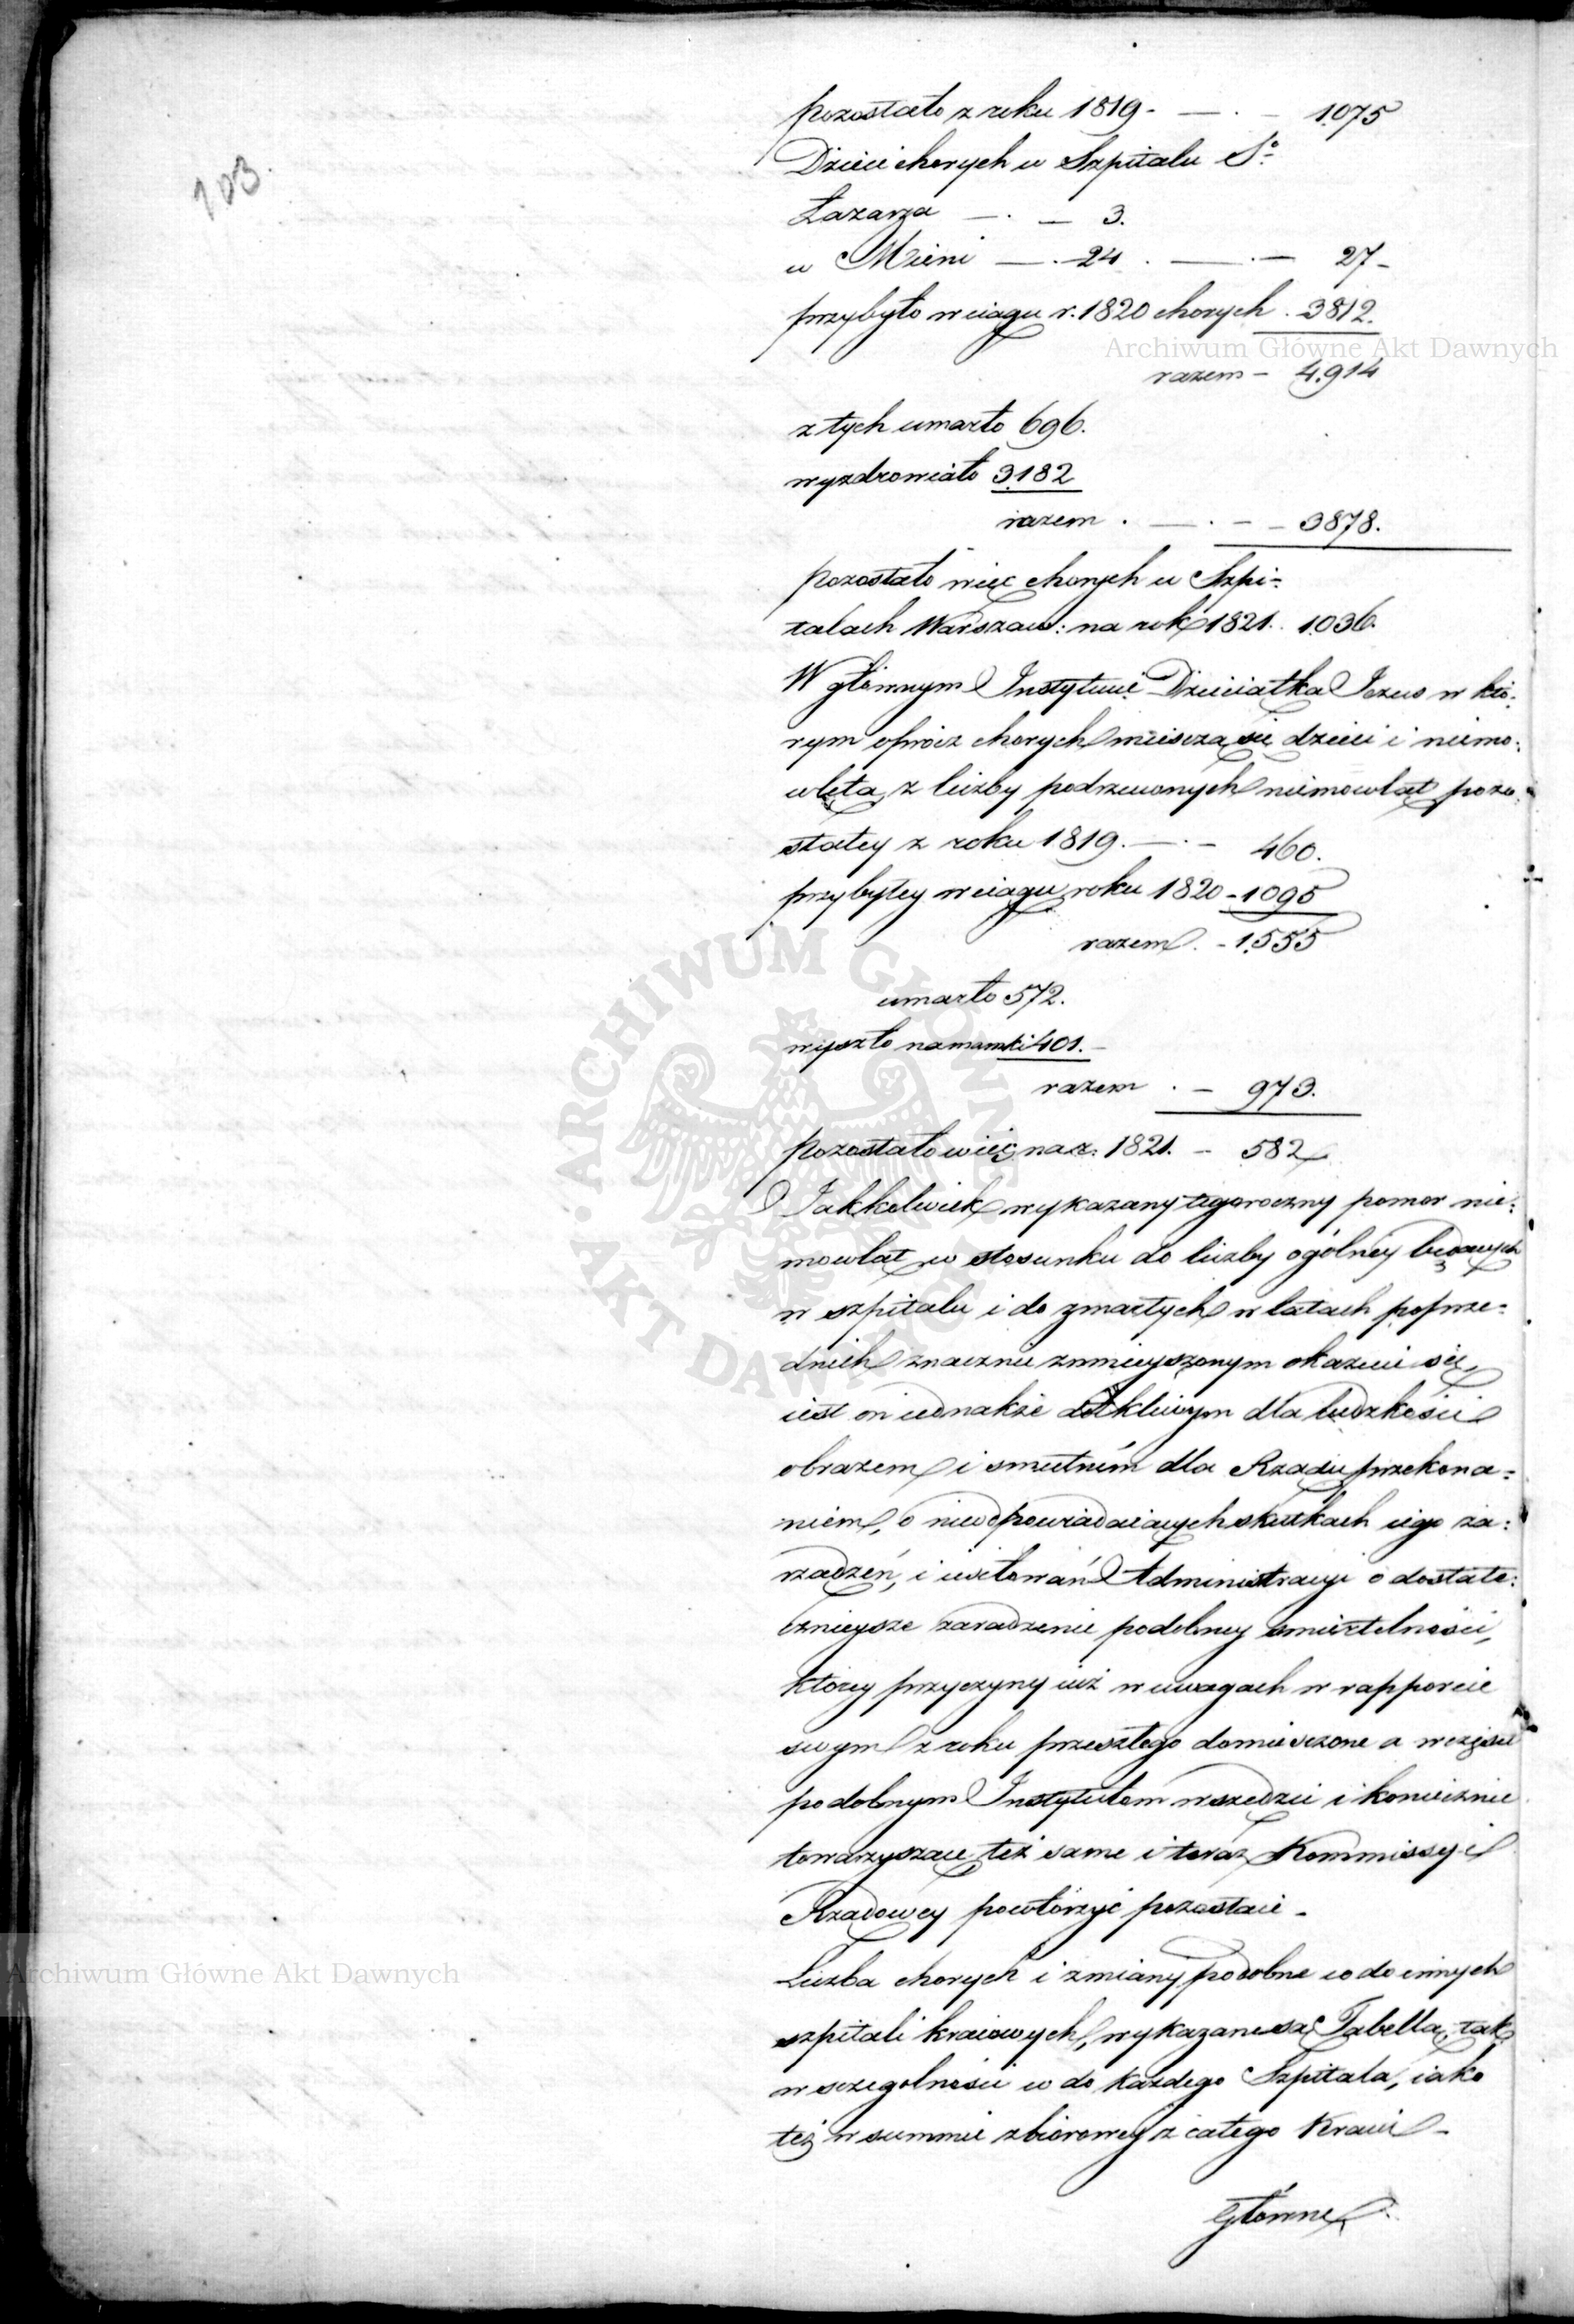 103.
pozostało z roku 1819 - — . - 1.075
Dzieci chorych w Szpitalu Sº
Łazarza — . — 3.
w Mieni — . 24 . — . — 27 -
przybyło w ciągu r. 1820 chorych . 3812.
Archiwum Główne Akt Dawnych
razem - 4.914
z tych umarło 696.
wyzdrowiało 3.182
razem . — . - - 3878.
pozostało więc chorych w Szpi-
talach Warszaw: na rok 1821. . 1.036.
W głównym Instytucie Dzieciątka Jezus w któ-
rym oprócz chorych mieszczą się dzieci i niemo-
wlęta, z liczby podrzuconych niemowląt pozo-
stałey z roku 1819. — . - 460.
przybyłey w ciągu roku 1820 - 1095
razem . - 1.555
umarło 572.
wyszło na mamki 401. -
razem . - 973.
pozostało więc na r. 1821. - 582
Jakkolwiek wykazany tegoroczny pomor nie-
mowląt w stosunku do liczby ogólney będących
w szpitalu i do zmarłych w latach poprze-
dnich znacznie zmnieyszonym okazuie się,
iest on iednakże dotkliwym dla ludzkości
obrazem i smutném dla Rządu przekona-
niem, o nieodpowiadaiących skutkach iego za-
rządzeń, i usiłowań Administracyi o dostate-
cznieysze zaradzenie podobney śmiertelności,
którey przyczyny iuż w uwagach w rapporcie
swym z roku przeszłego domieszczone a w części
podobnym Instytutom wszędzie i koniecznie
towarzyszące też same i teraz Kommissyi
Rządowey powtórzyć pozostaie -
Archiwum Główne Akt Dawnych
Liczba chorych i zmiany podobne co do innych
szpitali kraiowych, wykazane są Tabellą, tak
w szczególności co do każdego Szpitala, iako
też w summie zbiorowey z całego Kraiu -
Główne
ARCHIWUM GŁÓWNE AKT DAWNYCH